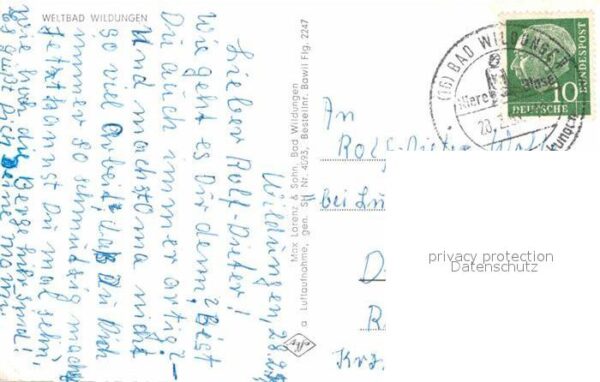 WELTBAD WILDUNGEN
Wildungen, 28.
Lieber Rolf-Dieter!
Wie geht es Dir denn? Bist
Du auch immer artig? –
Und machst Oma nicht
so viel Arbeit, Dich
immer so schmutzig machst
Jetzt kannst Du mal sehn,
wie hoch die Berge hier sind!
Es grüßt Dich Deine Mama.
Max Lorenz & Sohn, Bad Wildungen
a Luftaufnahme, gen. St. Nr. 4093, Bestellnr. Bawil Flg. 2247
(16) BAD WILDUNGEN
Niere Blase
DEUTSCHE
BUNDESPOST
10
An
Rolf-Dieter
bei
D
R
Krs.
privacy protection
Datenschutz